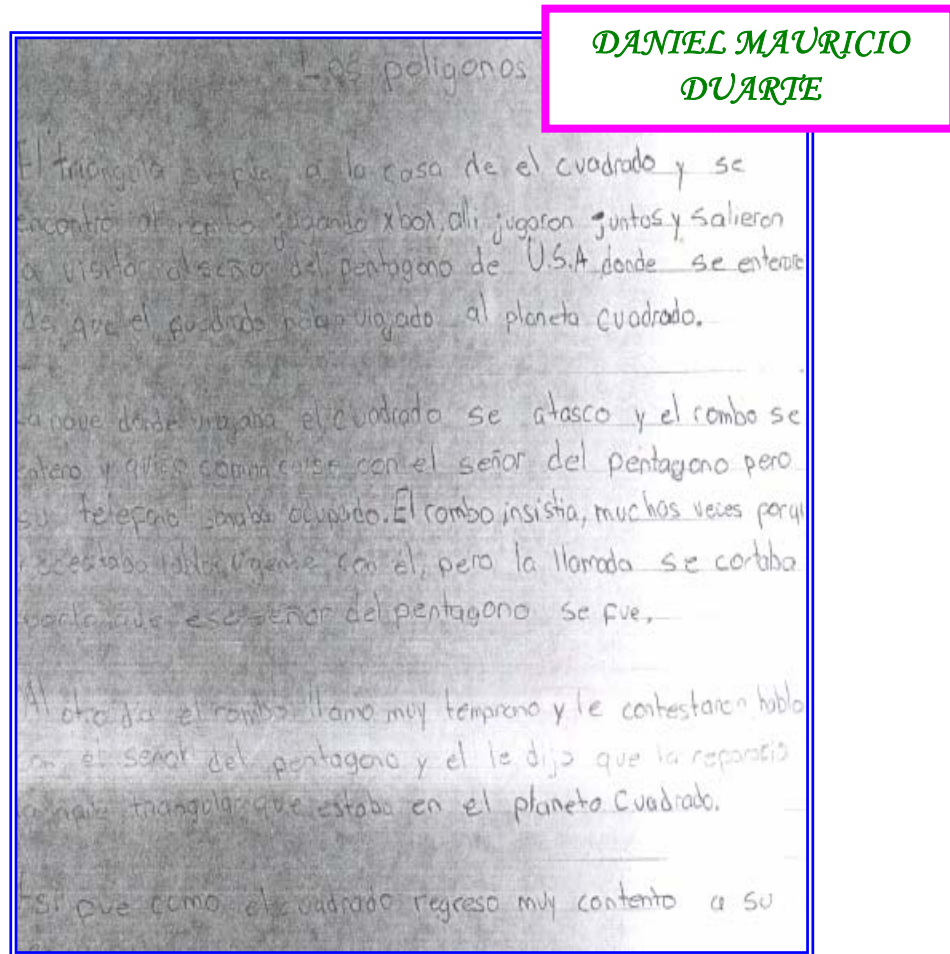 DANIEL MAURICIO
DUARTE
Los poligonos
El triangulo se fue a la casa de el cuadrado y se
encontró al rombo jugando xbox, alli jugaron juntos y salieron
a visitar al señor del pentagono de U.S.A donde se enteraro
de que el cuadrado habia viajado al planeta cuadrado.
La nave donde viajaba el cuadrado se atasco y el rombo se
entero y quiso comunicarse con el señor del pentagono pero
su telefono sonaba ocupado. El rombo insistia, muchas veces porqu
con el, pero la llamada se cortaba
ese señor del pentagono se fue,
Al otro dia el rombo llamo muy temprano y le contestaron hablo
con el señor del pentagono y el le dijo que la reparacio
nave triangular que estaba en el planeta Cuadrado.
fue como el cuadrado regreso muy contento a su